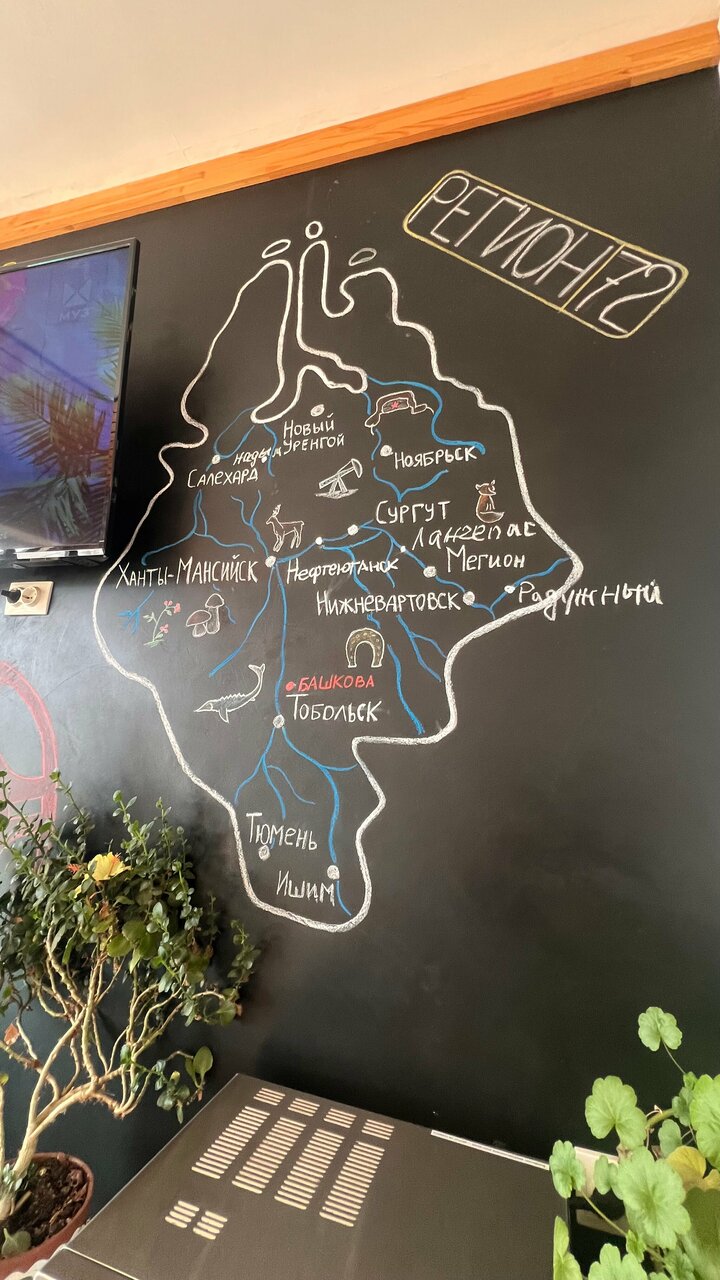 РЕГИОН 72
МУЗ
НОВЫЙ
УРЕНГОЙ
НАДЫМ
САЛЕХАРД
НОЯБРЬСК
СУРГУТ
Лангепас
ХАНТЫ-МАНСИЙСК
НЕФТЕЮГАНСК
МЕГИОН
НИЖНЕВАРТОВСК
Радужный
БАШКОВА
ТОБОЛЬСК
ТЮМЕНЬ
ИШИМ